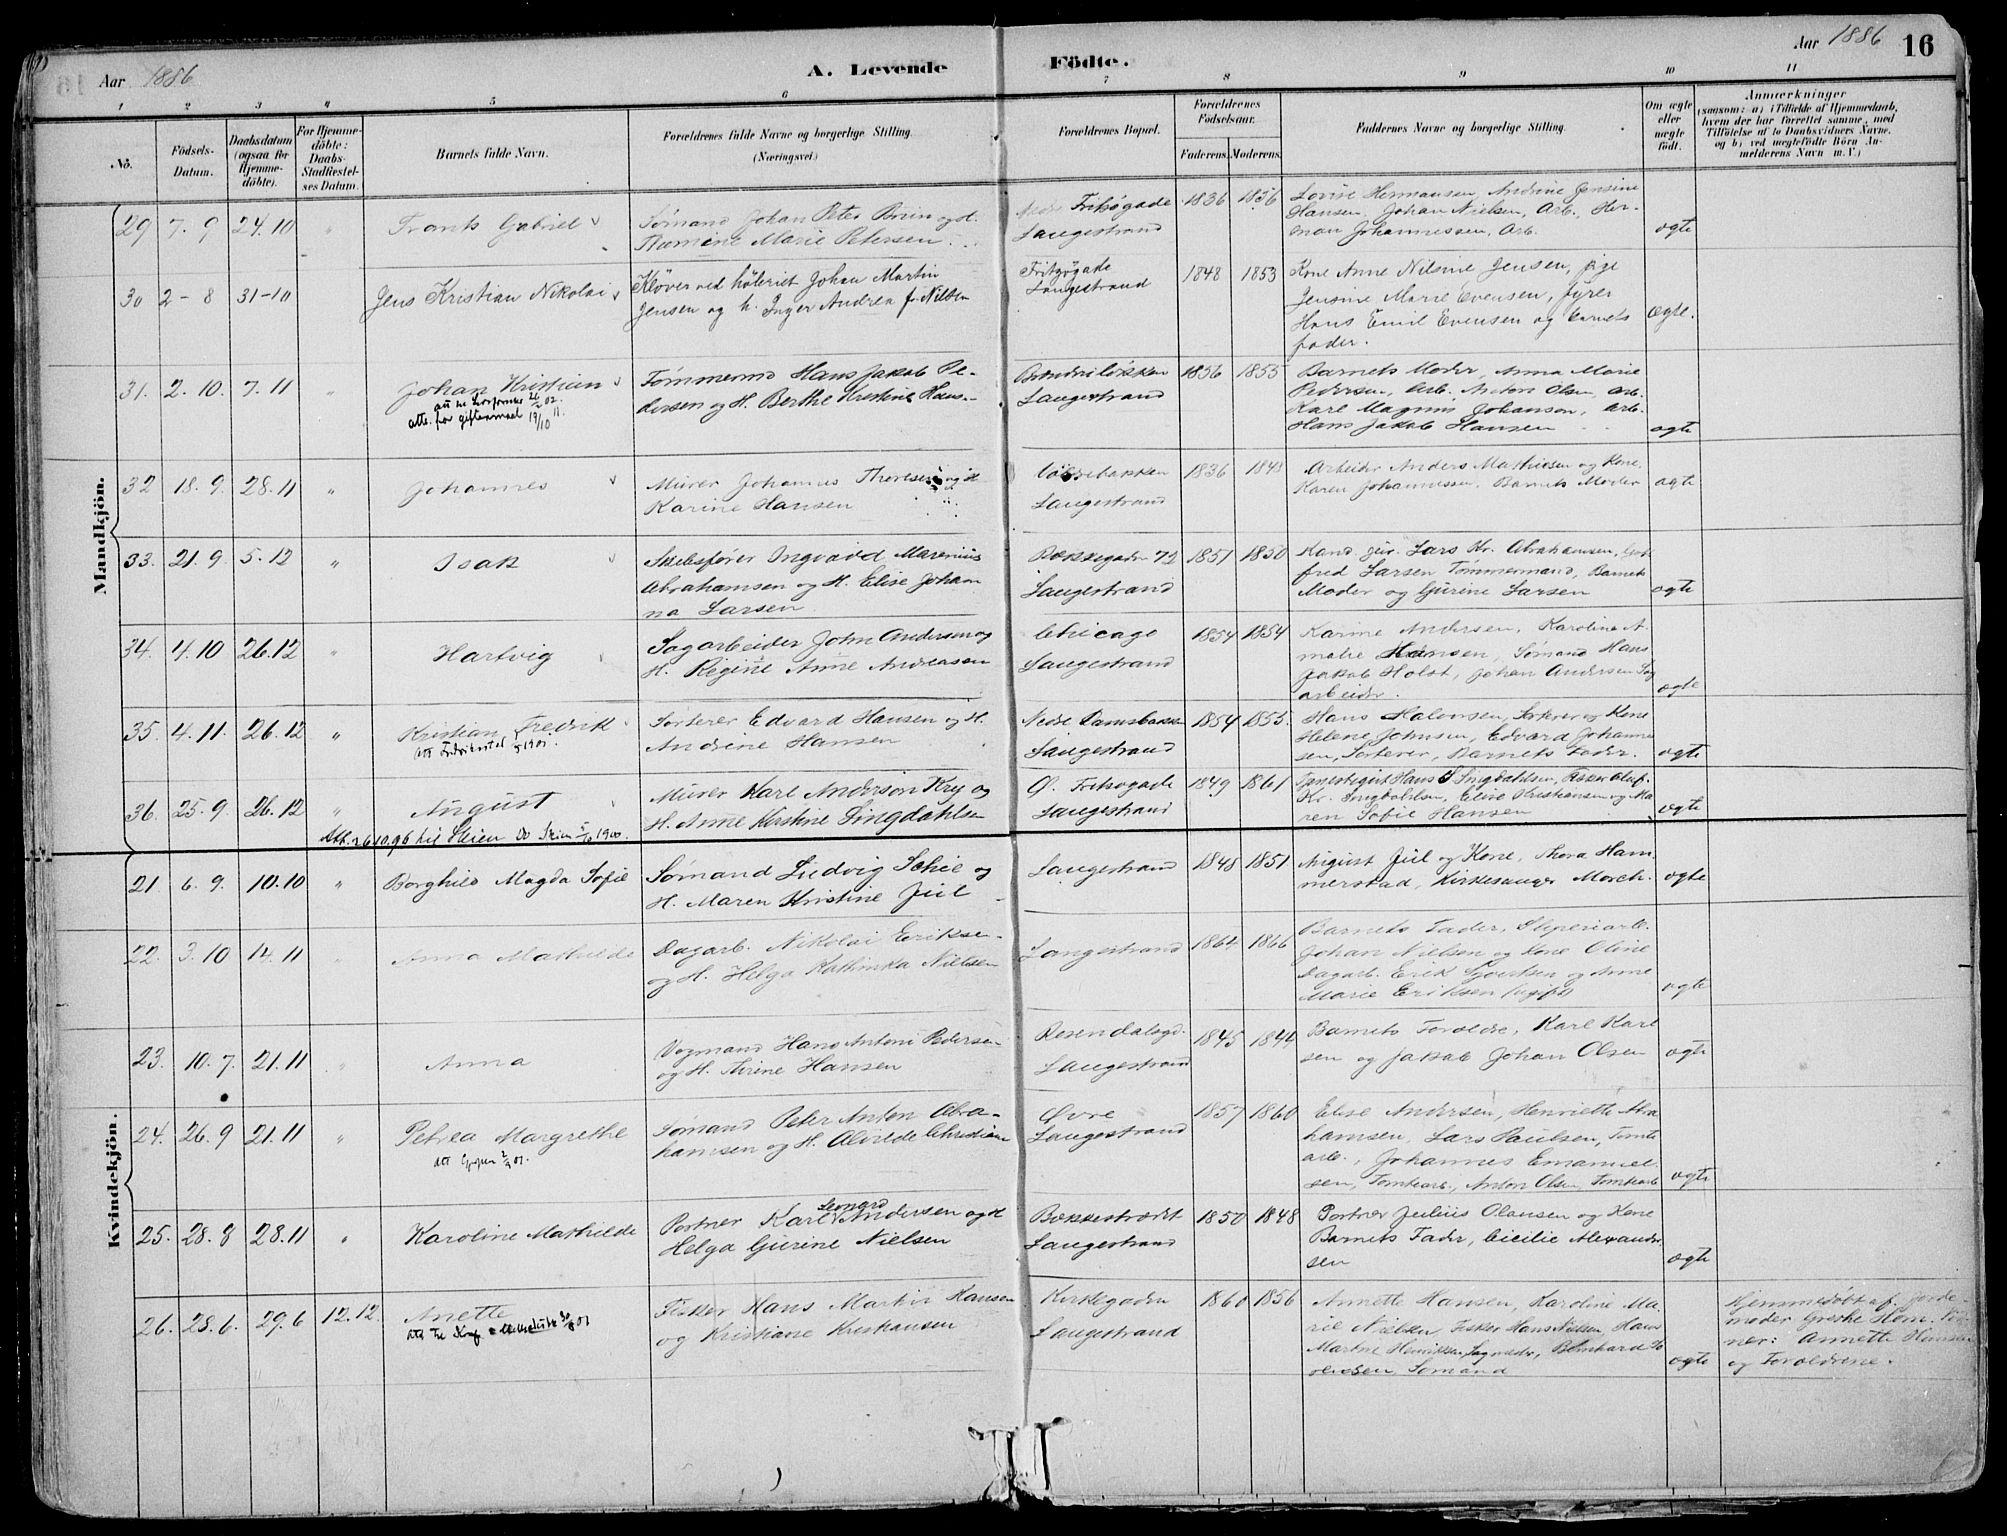 Aar 1886
A. Levende Födte.
Aar 1886 16
1 2 3 4 5 6 7 8 9 10 11
No.
Födsels-Datum.
Daabsdatum (ogsaa for Hjemme-döbte).
For Hjemme-döbte: Daabs-Stadfæstel-ses Datum.
Barnets fulde Navn.
Forældrenes fulde Navne og borgerlige Stilling.
(Næringsvei.)
Forældrenes Bopæl.
Forældrenes Födselsaar.
Faderens. Moderens.
Faddernes Navne og borgerlige Stilling.
Om ægte eller uægte födt.
Anmærkninger
(saasom: a) i Tilfælde af Hjemmedaab, hvem der har forrettet samme, med Tilföielse af to Daabsvidners Navne, og b) ved uægtefödte Börn An-melderens Navn m. V.)
Mandkjön.
29 7. 9 24. 10 " Frants Gabriel
Sømand Johan Peter Bruun og H.
Marie Petersen
Nedre Fritsøgade
Langestrand
1836 1836
Lovise Hermansen, Andrine Jensine
Hansen, Johan Nielsen, Arb., Her-
man Johannessen, Arb.
ægte
30 2-8 31-10 Jens Kristian Nikolai
Kløver ved høleriet Johan Martin
Jensen og h. Inger Andrea f. Nilsen
Fritzøgade
Langestrand
1848 1853
Kone Anne Nilsine Jensen, pige
Jensine Marie Evensen, fyrer
Hans Emil Evensen og barnets
fader.
ægte.
31. 2. 10. 7. 11 " Johan Kristian
att. for giftermaal 19/10 11.
Tømmermd Hans Jakob Pe-
dersen og H. Berthe Kristine Hans-
Langestrand
1856 1855
Barnets Moder, Anna Marie
Pedersen, Arb. Anton Olsen, Arb.
Karl Magnus Johanson, Arb.
Hans Jakob Hansen
ægte
32 18. 9. 28. 11 " Johannes
Murer Johannes Thoresen og H
Karine Hansen
Langestrand
1836 1843
Arbeider Anders Mathiesen og Kone,
Karen Johannessen. Barnets Moder
ægte
33. 21. 9. 5. 12 " Isak
Skibsfører Ingvald Marenius
Abrahamsen og H. Elise Johan
na Larsen
Bækkegaden 72
Langestrand
1851 1850
Kand. jur. Lars Kr. Abrahamsen,
fred Larsen Tømmermand, Barnets
Moder og Gurine Larsen
ægte
34. 4. 10 26. 12 " Hartvig
Sagarbeider John Andersen og
H. Regine Anne Andreassen
Chicago
Langestrand
1854 1854
Karine Andersen, Karoline A-
malie Hansen, Sømand Hans
Jakob Holst, Johan Andersen Sag
arbeider.
ægte
35. 4. 11. 26. 12 " Kristian Fredrik
Sorterer Edvard Hansen og H.
Andrine Hansen
Nedre Damsbakken
Langestrand
1854 1855.
Hans Halvorsen, Sorterer og Kone
Helene Johnsen, Edvard Johanne
sen, Sorterer, Barnets Fader.
ægte
36. 25. 9. 26. 12 " August
Att. 26.10.96 til Skien Do Skien 1900.
Murer Karl Anderson Kry og
H. Anne Kirstine Lingdahlsen
Ø. Fritsøgade
Langestrand
1849 1861
Kr. Lingdahlsen, Elise Kristiansen og Ma
ren Sofie Hansen
ægte
Kvindekjön.
21. 6. 9. 10. 10 " Borghild Magda Sofie
Sømand Ludvig Schie og
H. Maren Kristine Juel
Langestrand
1848 1851
August Juel og Kone, Thora Ham-
merstad, Kirkesanger Morch.
ægte
22. 3. 10 14. 11 " Anna Mathilde
Dagarb. Nikolai Eriksen
og H. Helga Kathinka Nielsen
Langestrand
1864 1866
Barnets Fader, Sliperiarb.
Johan Nielsen og Kone Oline
Dagarb. Erik Sjurtsen og Anne
Marie Eriksen (ugift)
ægte
23. 10. 7. 21. 11 " Anna
Vogmand Hans Anton Pedersen
og H. Hansen
Rosendalsgd.
Langestrand
1845 1844
Barnets Forældre, Karl Karl
sen og Jakob Johan Olsen
ægte
24. 26. 9 21. 11 " Petrea Margrethe
Sømand Peter Anton Abra-
hamsen og H. Alvilde Christian
Øvre
Langestrand
1857 1860
Elise Andersen, Henriette Abra
hamsen, Lars Paulsen, Tomte
arb., Johannes Emanuel-
sen, Tomtearb., Anton Olsen, Tomtearb
ægte
25. 28. 8 28. 11 " Karoline Mathilde
Leonard
Portner Karl Andersen og H
Helga Gurine Nielsen
Bækkestrædet
Langestrand
1850 1848
Portner Julius Olausen og Kone
Barnets Fader, Cicilie Alexander
sen
ægte
26. 28. 6. 29. 6 12. 12. Anette
Fisker Hans Martin Hansen
og Kristiane Kristiansen
Kirkegaden
Langestrand
1860 1856
Annette Hansen, Karoline Ma-
rie Nielsen, Fisker Hans Nielsen, Hans
Martin Henriksen, Bernhard
Sømand
ægte
Hjemmedøbt af Jorde-
moder Grethe Hem.
Annette Hansen
og Forældrene.